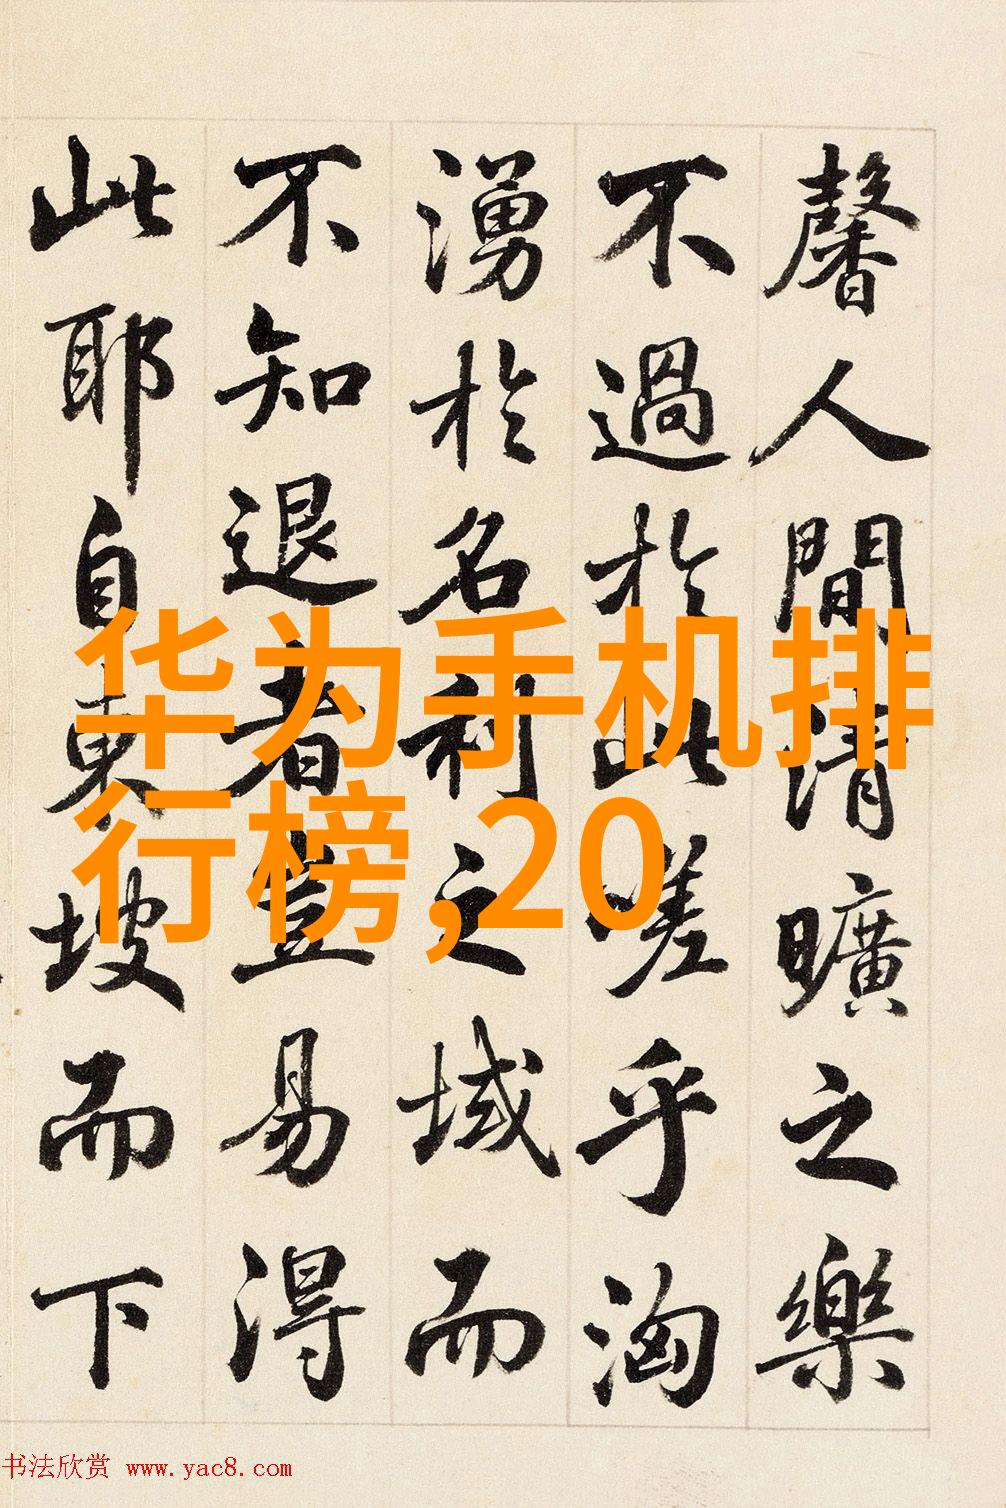 馨人間清曠之樂
不過於此嗟乎洶
湧於名利之域而
不知退者豈易得
此耶自東坡而下
华为手机排
行榜,20
书法欣赏 www.yac8.com